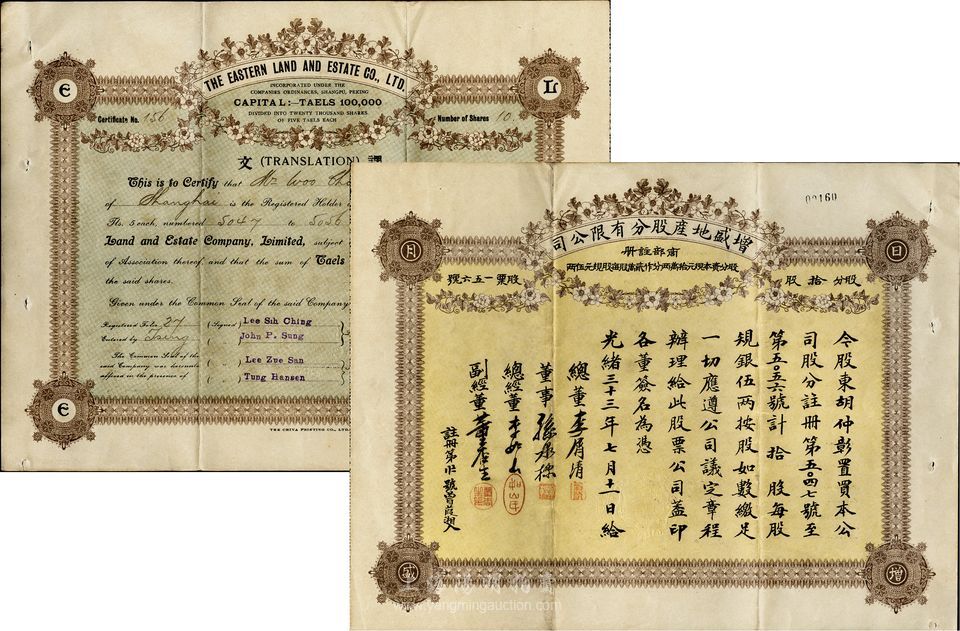 THE EASTERN LAND AND ESTATE CO., LTD.
INCORPORATED UNDER THE
COMPANIES ORDINANCES, SHANGPU, PEKING
CAPITAL:—TAELS 100,000
DIVIDED INTO TWENTY THOUSAND SHARES
OF FIVE TAELS EACH
E
L
Certificate No. 156
Number of Shares 10
文 (TRANSLATION) 譯
This is to Certify that Mr Woo
of Shanghai is the Registered Holder
Tls. 5 each, numbered 5047 to 5056
Land and Estate Company, Limited, subject
of Association thereof, and that the sum of Taels
the said shares.
Given under the Common Seal of the said Company
Registered Folio 27
Entered by
(Signed) Lee Sih Ching
John P. Sung
Lee Zue San
Tung Hansen
The Common Seal of the
said Company was hereunto
affixed in the presence of
E
THE CHINA PRINTING CO., LTD.
00160
司公限有份股產地盛增
冊註部商
兩伍元規股每股萬貳作分兩萬拾元規本資份股
月
日
號六五一票股
股 拾 份股
今股東胡仲彰置買本公
司股分註冊第五〇四七號至
第五〇五六號計 拾 股每股
規銀伍兩按股如數繳足
一切應遵公司議定章程
辦理給此股票公司蓋印
各董簽名為憑
光緒三十三年七月十一日給
總董李屑清
董事
總經董
副經董
註冊第廿七號
盛
增
www.yangmingauction.com